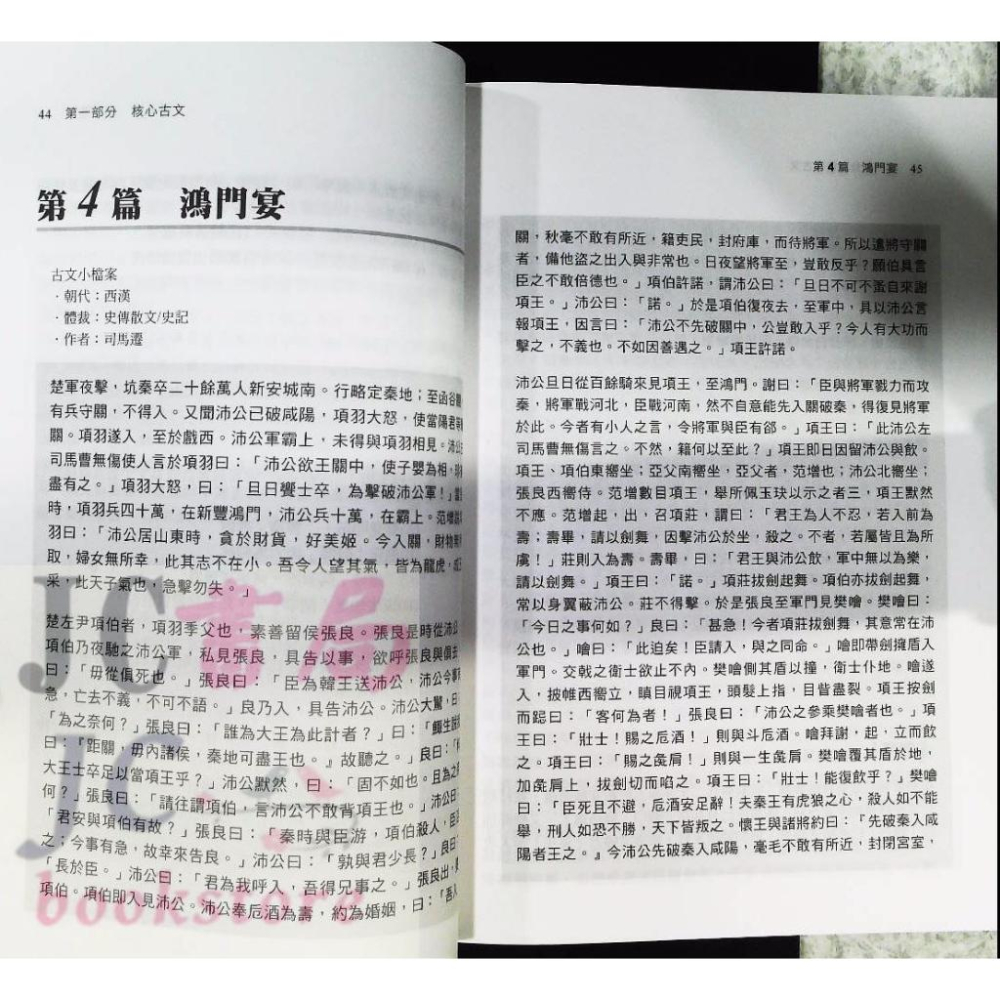 44 第一部分 核心古文
第 4 篇 鴻門宴
古文小檔案
．朝代：西漢
．體裁：史傳散文/史記
．作者：司馬遷
楚軍夜擊，坑秦卒二十餘萬人新安城南。行略定秦地；至函谷關
有兵守關，不得入。又聞沛公已破咸陽，項羽大怒，使當陽君
關。項羽遂入，至於戲西。沛公軍霸上，未得與項羽相見。沛公
司馬曹無傷使人言於項羽曰：「沛公欲王關中，使子嬰為相，
盡有之。」項羽大怒，曰：「旦日饗士卒，為擊破沛公軍！」當
時，項羽兵四十萬，在新豐鴻門，沛公兵十萬，在霸上。范增說
羽曰：「沛公居山東時，貪於財貨，好美姬。今入關，財物無
取，婦女無所幸，此其志不在小。吾令人望其氣，皆為龍虎，成
采，此天子氣也，急擊勿失。」
楚左尹項伯者，項羽季父也，素善留侯張良。張良是時從沛公
項伯乃夜馳之沛公軍，私見張良，具告以事，欲呼張良與俱去
曰：「毋從俱死也。」張良曰：「臣為韓王送沛公，沛公今事
急，亡去不義，不可不語。」良乃入，具告沛公。沛公大驚，曰
「為之奈何？」張良曰：「誰為大王為此計者？」曰：「鯫生說
曰：『距關，毋內諸侯，秦地可盡王也。』故聽之。」良曰：「
大王士卒足以當項王乎？」沛公默然，曰：「固不如也。且為之
何？」張良曰：「請往謂項伯，言沛公不敢背項王也。」沛公曰
「君安與項伯有故？」張良曰：「秦時與臣游，項伯殺人，臣
之；今事有急，故幸來告良。」沛公曰：「孰與君少長？」良曰
「長於臣。」沛公曰：「君為我呼入，吾得兄事之。」張良出，
項伯。項伯即入見沛公。沛公奉卮酒為壽，約為婚姻，曰：「吾入
第 4 篇 鴻門宴 45
關，秋毫不敢有所近，籍吏民，封府庫，而待將軍。所以遣將守關
者，備他盜之出入與非常也。日夜望將軍至，豈敢反乎？願伯具言
臣之不敢倍德也。」項伯許諾，謂沛公曰：「旦日不可不蚤自來謝
項王。」沛公曰：「諾。」於是項伯復夜去，至軍中，具以沛公言
報項王，因言曰：「沛公不先破關中，公豈敢入乎？今人有大功而
擊之，不義也。不如因善遇之。」項王許諾。
沛公旦日從百餘騎來見項王，至鴻門。謝曰：「臣與將軍戮力而攻
秦，將軍戰河北，臣戰河南，然不自意能先入關破秦，得復見將軍
於此。今者有小人之言，令將軍與臣有郤。」項王曰：「此沛公左
司馬曹無傷言之。不然，籍何以至此？」項王即日因留沛公與飲。
項王、項伯東嚮坐；亞父南嚮坐，亞父者，范增也；沛公北嚮坐；
張良西嚮侍。范增數目項王，舉所佩玉玦以示之者三，項王默然
不應。范增起，出，召項莊，謂曰：「君王為人不忍，若入前為
壽；壽畢，請以劍舞，因擊沛公於坐，殺之。不者，若屬皆且為所
虜！」莊則入為壽。壽畢，曰：「君王與沛公飲，軍中無以為樂，
請以劍舞。」項王曰：「諾。」項莊拔劍起舞。項伯亦拔劍起舞，
常以身翼蔽沛公。莊不得擊。於是張良至軍門見樊噲。樊噲曰：
「今日之事何如？」良曰：「甚急！今者項莊拔劍舞，其意常在沛
公也。」噲曰：「此迫矣！臣請入，與之同命。」噲即帶劍擁盾入
軍門。交戟之衛士欲止不內。樊噲側其盾以撞，衛士仆地。噲遂
入，披帷西嚮立，瞋目視項王，頭髮上指，目眥盡裂。項王按劍
而跽曰：「客何為者！」張良曰：「沛公之參乘樊噲者也。」項
王曰：「壯士！賜之卮酒！」則與斗卮酒。噲拜謝，起，立而飲
之。項王曰：「賜之彘肩！」則與一生彘肩。樊噲覆其盾於地，
加彘肩上，拔劍切而啗之。項王曰：「壯士！能復飲乎？」樊噲
曰：「臣死且不避，卮酒安足辭！夫秦王有虎狼之心，殺人如不能
舉，刑人如恐不勝，天下皆叛之。懷王與諸將約曰：『先破秦入咸
陽者王之。』今沛公先破秦入咸陽，毫毛不敢有所近，封閉宮室，
JC 書局
JC
bookstore